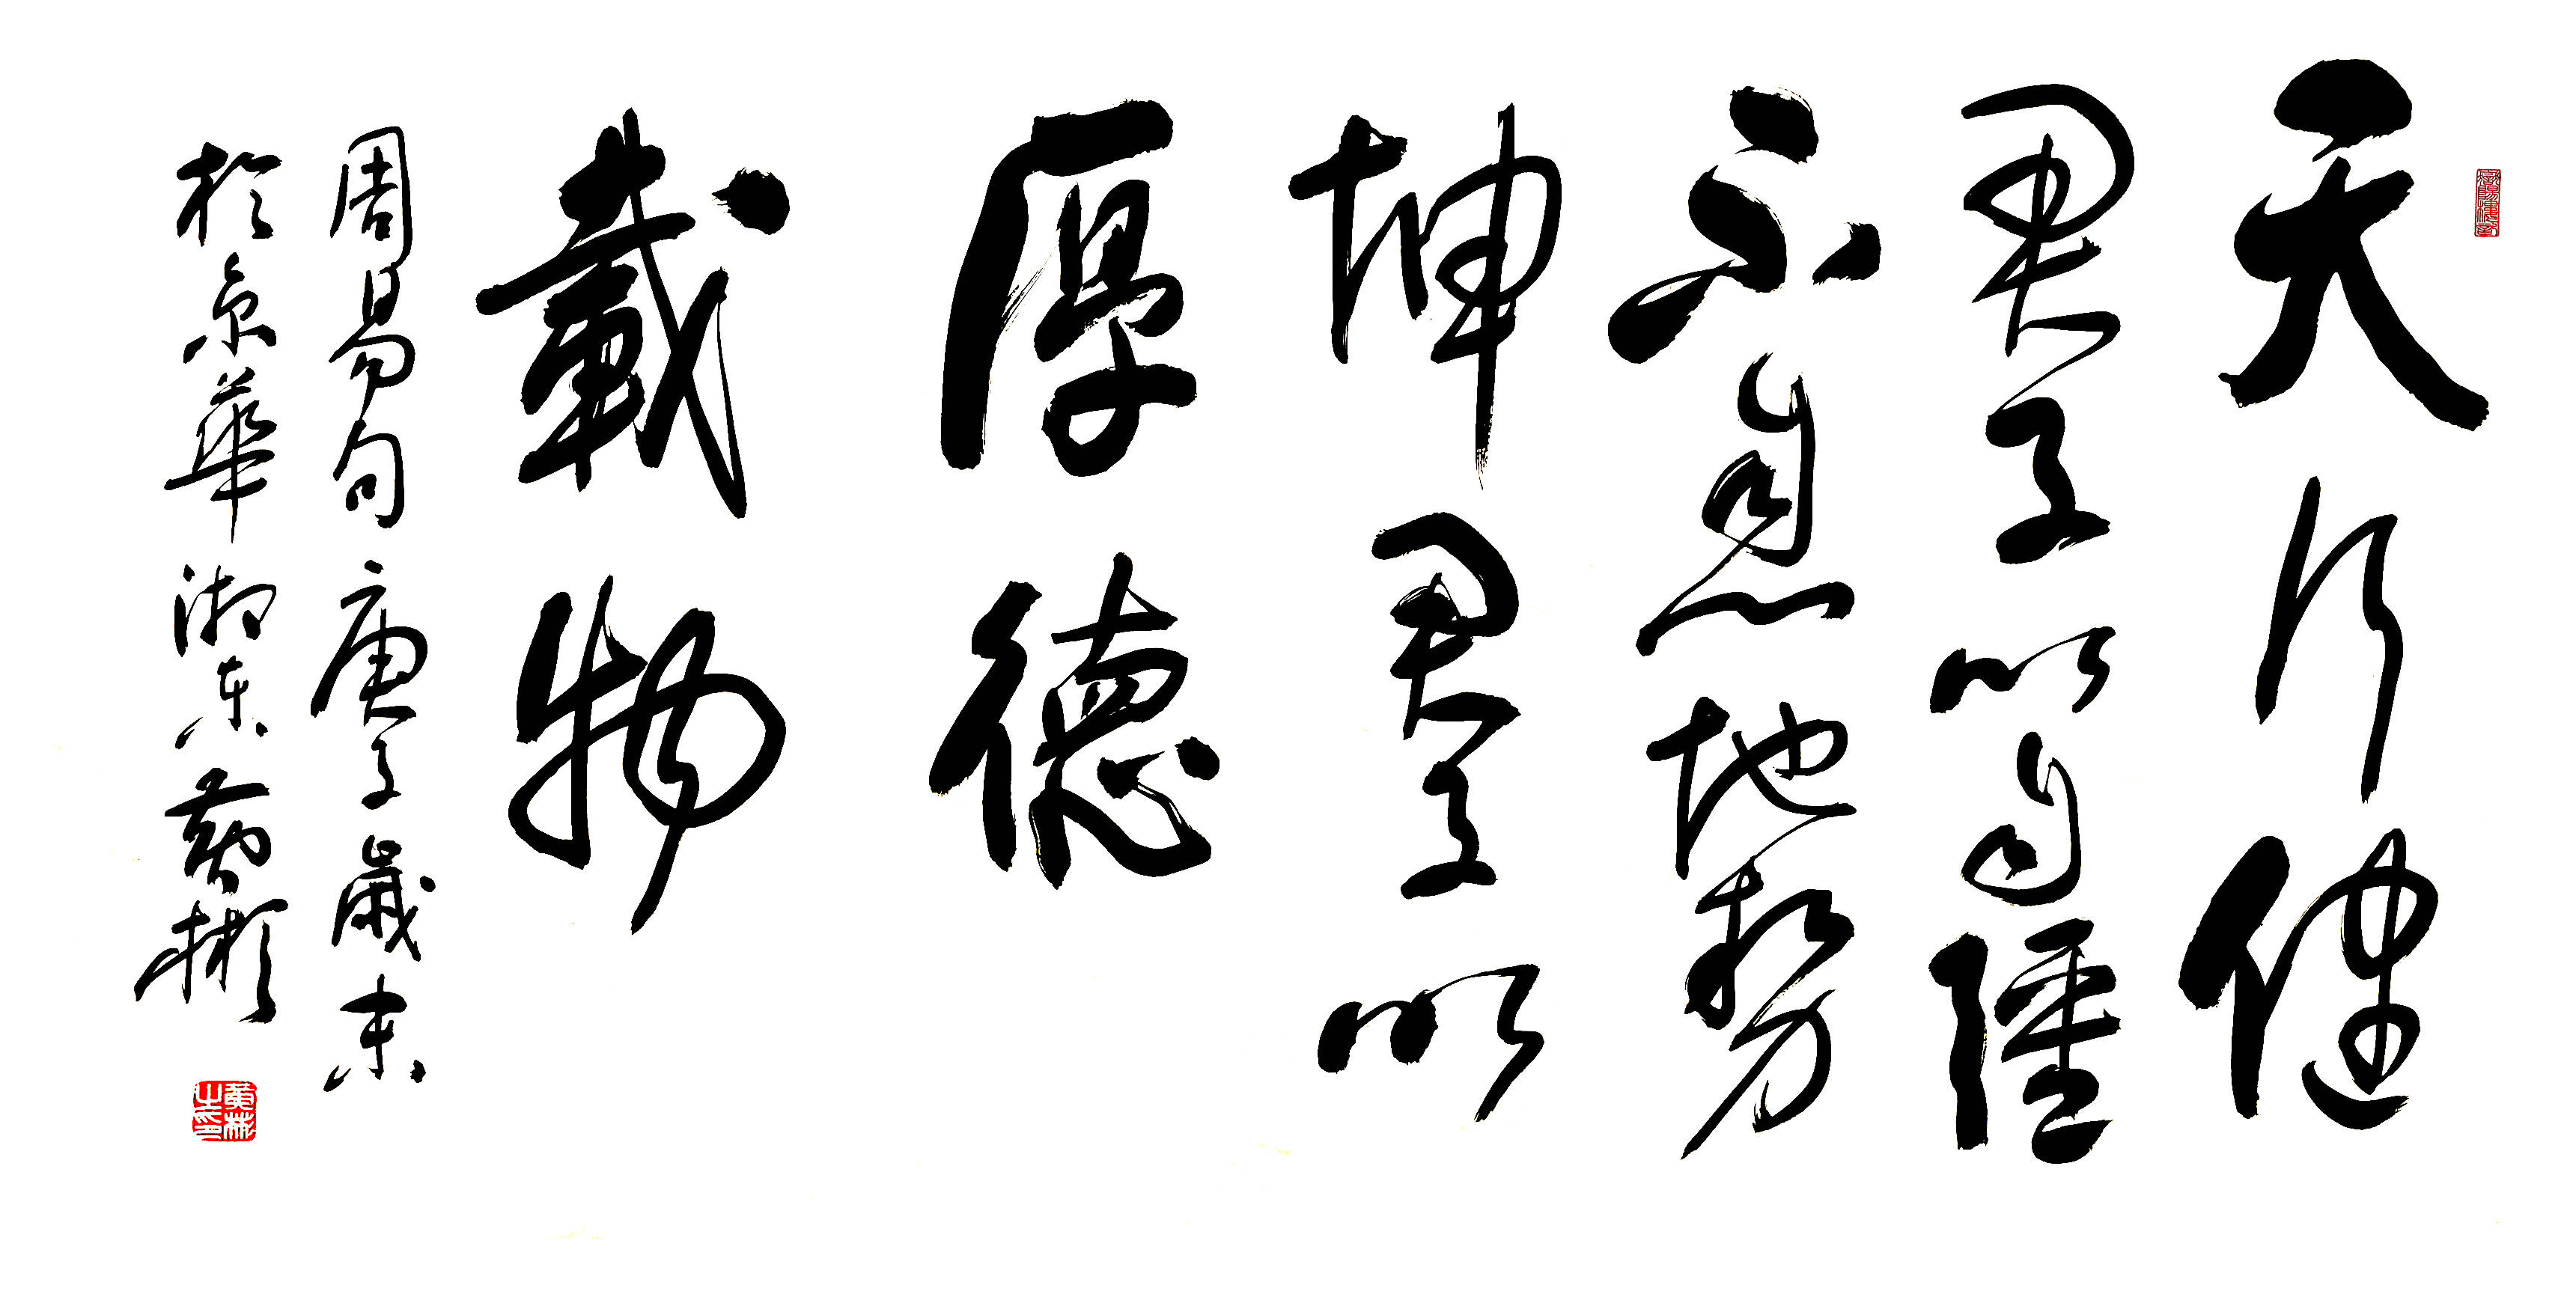 天行健
君子以自強
不息地勢
坤君子以
厚德
載物
周易句庚子歲末
於京華湘東黃彬
黃彬之印